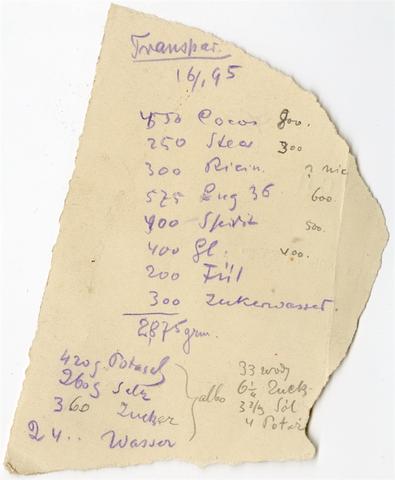 Transpar.
16/, 95
450 Cocos 800.
250 Stea 300
300 Ricin. ? nic
575 Lug 36 600.
400 Spirit 500.
400 Gl. 400.
200 Fül
300 Zukerwasser.
2,875 grm.
420 g. Potasch
260 g Salz
360 Zucker
24.. Wasser
albo
33 wody
6 1/4 Zuck
3 2/3 Sól
4 Potaż